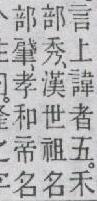 言上諱者五。禾
部秀、漢世祖名
部肈孝和帝名